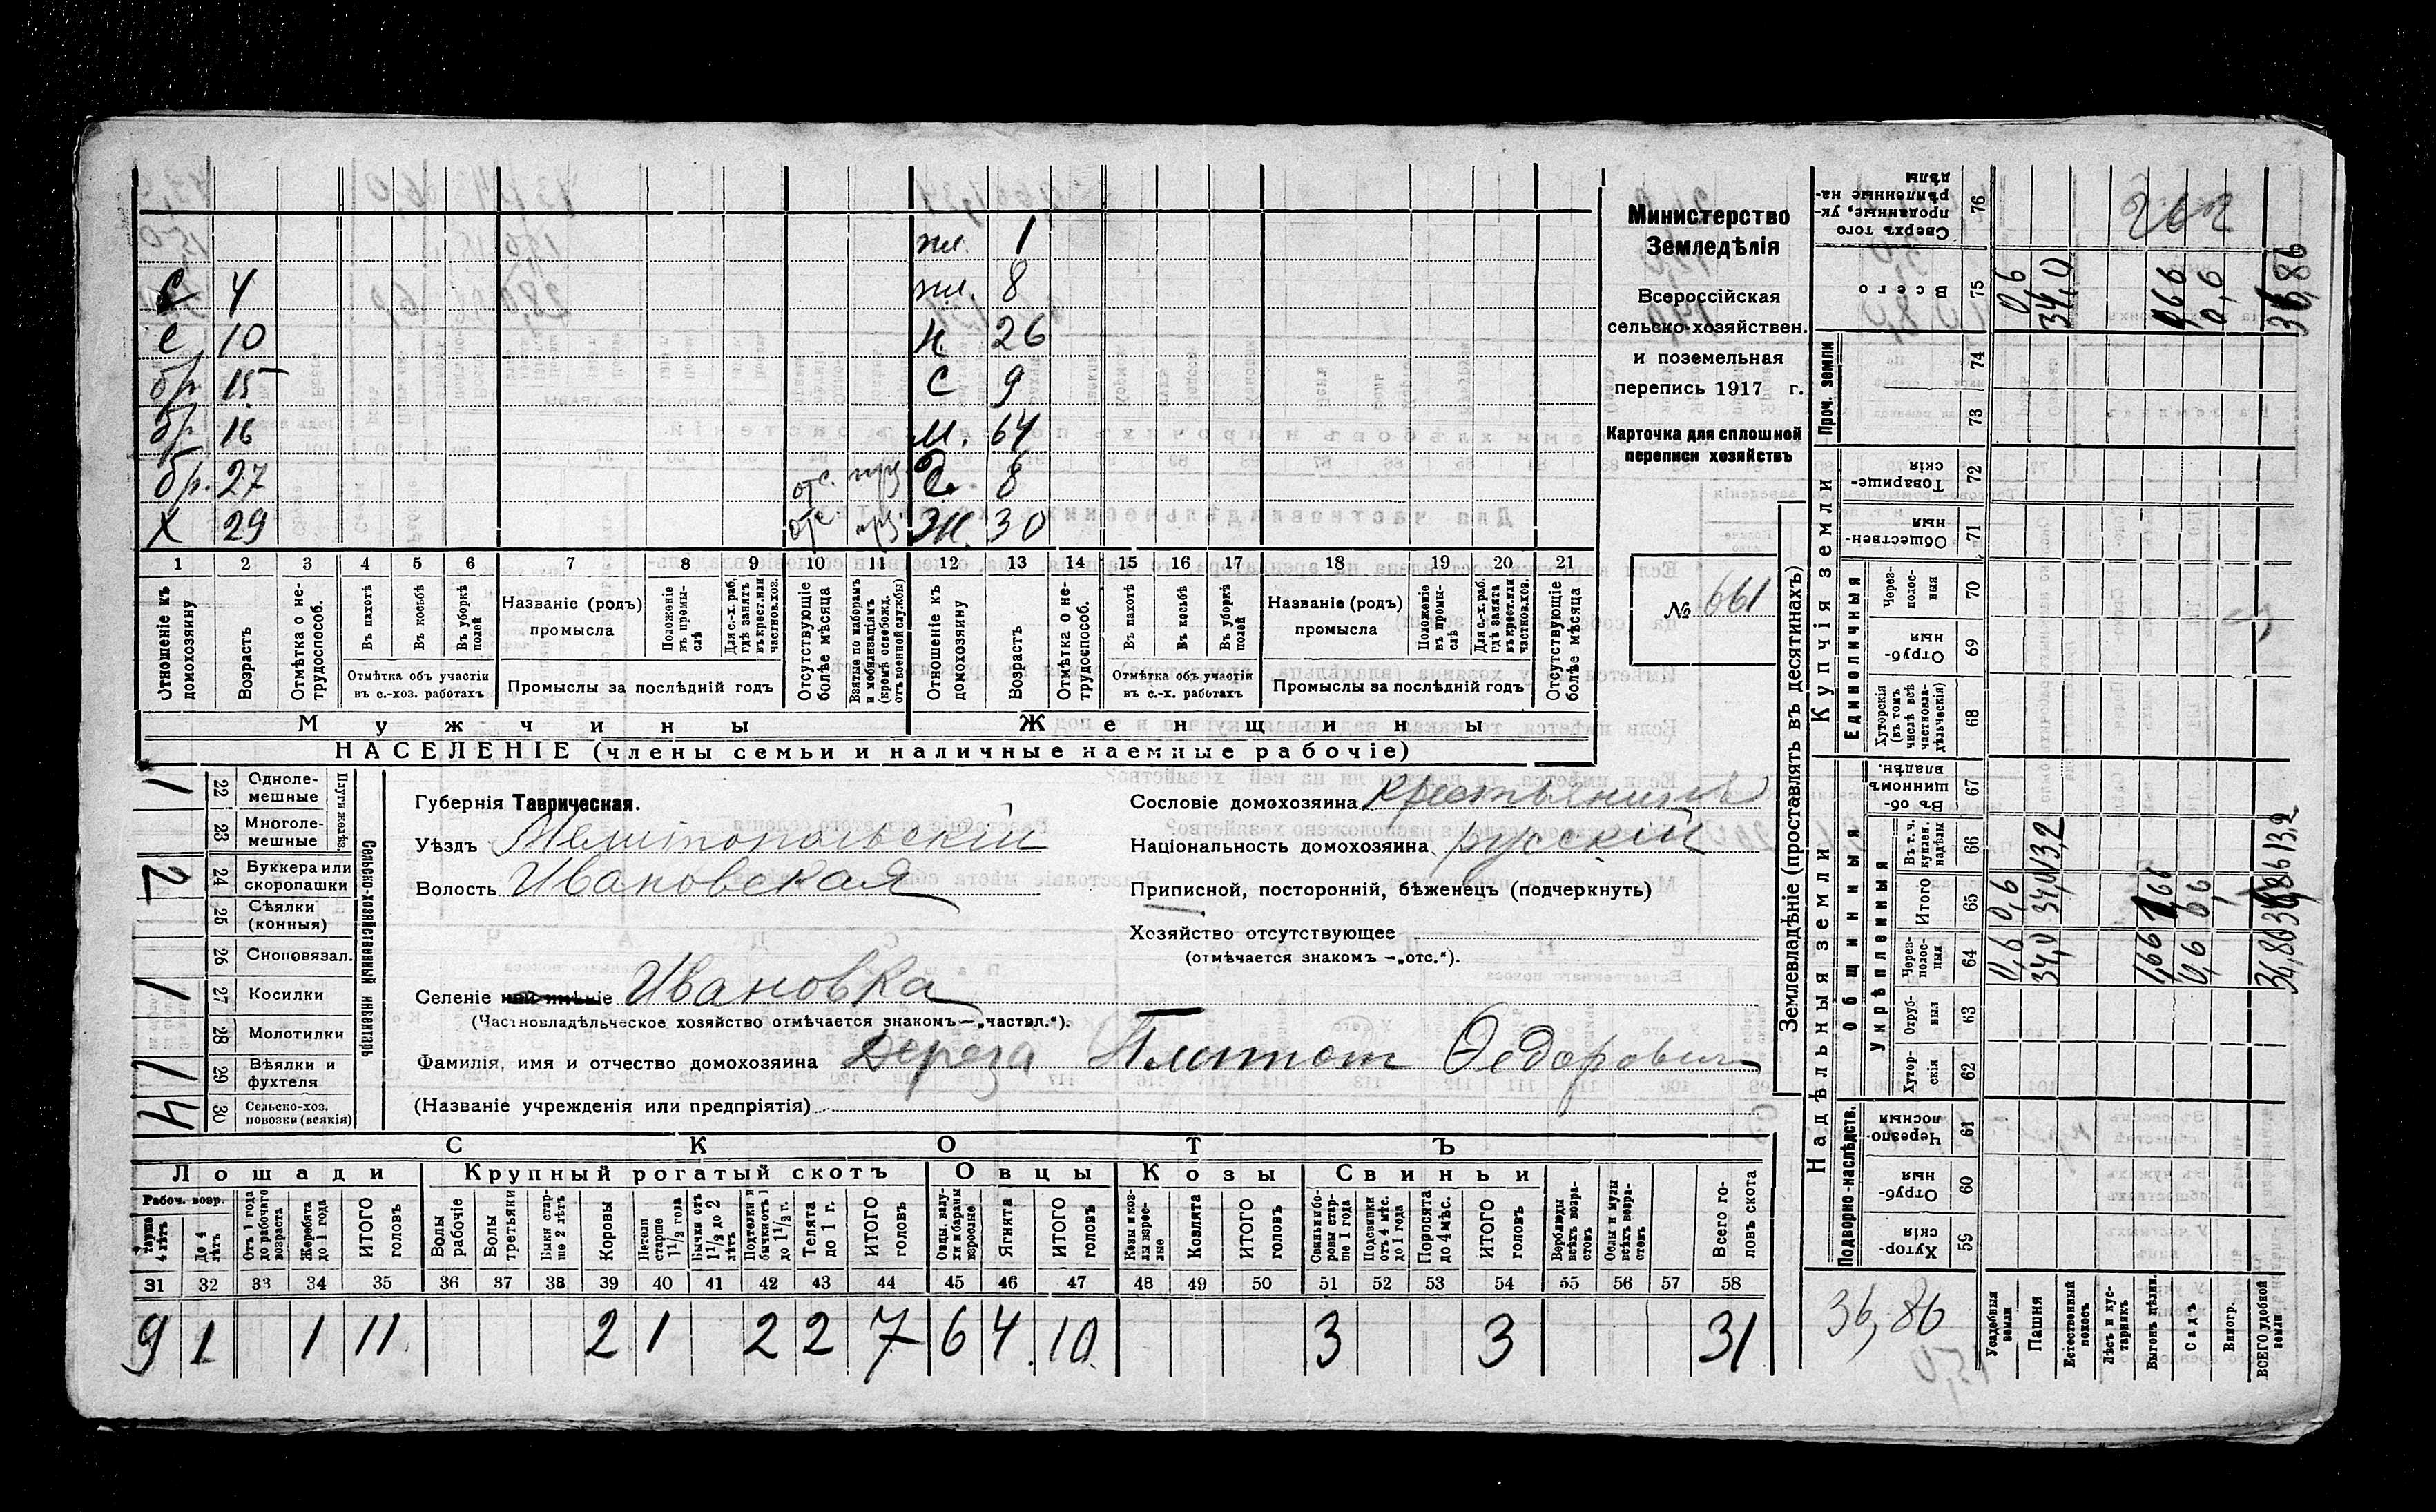 пл. 1
С 4 пл. 8
С 10 Н. 26
бр 15 С 9
бр 16 М. 64
бр. 27 отс. прз С. 8
Х 29 отс. прз Ж. 30
1 2 3 4 5 6 7 8 9 10 11 12 13 14 15 16 17 18 19 20 21
Отношеніе къ домохозяину
Возрастъ
Отмѣтка о нетрудоспособ.
Въ пахотѣ
Въ косьбѣ
Въ уборкѣ полей
Отмѣтка объ участіи
въ с.-хоз. работахъ
Названіе (родъ)
промысла
Положеніе въ промыслѣ
Для с.-х. раб. гдѣ занятъ въ крест. или частнов. хоз.
Промыслы за послѣдній годъ
Отсутствующіе болѣе мѣсяца
Взятые по наборамъ и мобилизаціямъ (кромѣ освобожд. отъ военной службы)
Отношеніе къ домохозяину
Возрастъ
Отмѣтка о нетрудоспособ.
Въ пахотѣ
Въ косьбѣ
Въ уборкѣ полей
Отмѣтка объ участіи
въ с.-х. работахъ
Названіе (родъ)
промысла
Положеніе въ промыслѣ
Для с.-х. раб. гдѣ занятъ въ крест. или частнов. хоз.
Промыслы за послѣдній годъ
Отсутствующіе болѣе мѣсяца
Мужчины Женщины
НАСЕЛЕНІЕ (члены семьи и наличные наемные рабочіе)
Министерство
Земледѣлія
Всероссійская
сельско-хозяйствен.
и поземельная
перепись 1917 г.
Карточка для сплошной
переписи хозяйствъ
№ 661
Сельско-хозяйственный инвентарь
Плуги желѣз.
1 22 Однолемешные
23 Многолемешные
2 24 Буккера или скоропашки
25 Сѣялки (конныя)
26 Сноповязал.
1 27 Косилки
28 Молотилки
1 29 Вѣялки и фухтеля
4 30 Сельско-хоз. повозки (всякія)
Губернія Таврическая.
Уѣздъ Мелитопольскій
Волость Ивановская
Селеніе или имѣніе Ивановка
(Частновладѣльческое хозяйство отмѣчается знакомъ—„частвл.“).
Фамилія, имя и отчество домохозяина Дереза Платон Федорович
(Названіе учрежденія или предпріятія)
Сословіе домохозяина крестьянинъ
Національность домохозяина русскій
Приписной, посторонній, бѣженецъ (подчеркнуть)
Хозяйство отсутствующее
(отмѣчается знакомъ —„отс.“).
СКОТЪ
Лошади Крупный рогатый скотъ Овцы Козы Свиньи
Рабоч. возр.
Старше 4 лѣтъ
До 4 лѣтъ
Отъ 1 года до рабочаго возраста
Жеребята до 1 года
ИТОГО головъ
Волы рабочіе
Волы третьяки
Быки старше 2 лѣтъ
Коровы
Нетели старше 1½ года
Бычки отъ 1½ до 2 лѣтъ
Подтелки и бычки отъ 1 до 1½ г.
Телята до 1 г.
ИТОГО головъ
Овцы, валухи и бараны взрослые
Ягнята
ИТОГО головъ
Козы и козлы взрослые
Козлята
ИТОГО головъ
Свиньи боровы старше 1 года
Подсвинки отъ 4 мѣс. до 1 года
Поросята до 4 мѣс.
ИТОГО головъ
Верблюды всѣхъ возрастовъ
Ослы и мулы всѣхъ возрастовъ
Всего головъ скота
31 32 33 34 35 36 37 38 39 40 41 42 43 44 45 46 47 48 49 50 51 52 53 54 55 56 57 58
9 1 1 11 2 1 2 2 7 6 4 10 3 3 31
Землевладѣніе (проставлять въ десятинахъ)
Надѣльныя земли Купчія земли Проч. земли
Подворно-наслѣдств.
Общинныя
Укрѣпленныя
Единоличныя
59 Хуторскія
60 Отрубныя
61 Черезполосныя
62 Хуторскія
63 Отрубныя
64 Черезполосныя 0,6 34,0 1,66 0,6 36,86
65 Итого 0,6 34,0 1,66 0,6 36,86
66 Въ т. ч. куплен. надѣлы 13,2 13,2
67 Въ общинномъ владѣн.
68 Хуторскія (въ томъ числѣ всѣ частновладѣльческія)
69 Отрубныя
70 Черезполосныя
71 Общественныя
72 Товарищескія
73
74
75 Всего 0,6 34,0 1,66 0,6 36,86
76 Сверхъ того проданные, укрѣпленные надѣлы
36,86
Усадебныя земли
Пашня
Естественный покосъ
Лѣсъ и кустарникъ
Выгонъ дѣлим.
Садъ
Виногр.
ВСЕГО удобной земли